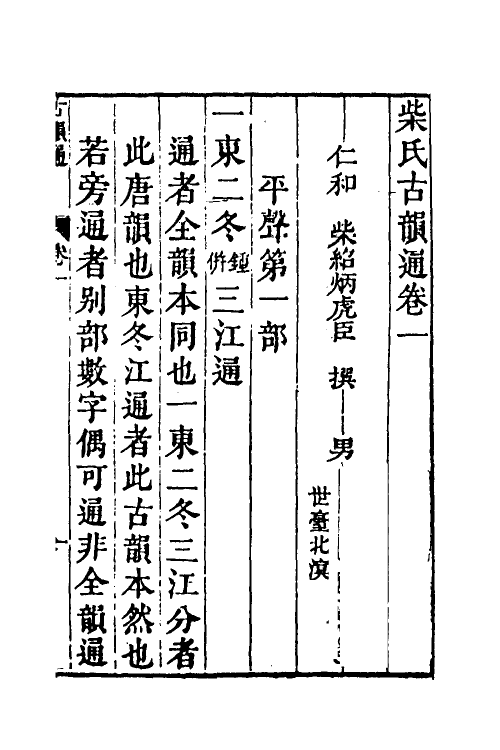 柴氏古韻通卷一
仁和 柴紹炳虎臣 撰 男
世臺北溟
平聲第一部
一東二冬鍾併三江通
通者全韻本同也一東二冬三江分者
此唐韻也東冬江通者此古韻本然也
若旁通者别部數字偶可通非全韻通
古韻通 卷一 一